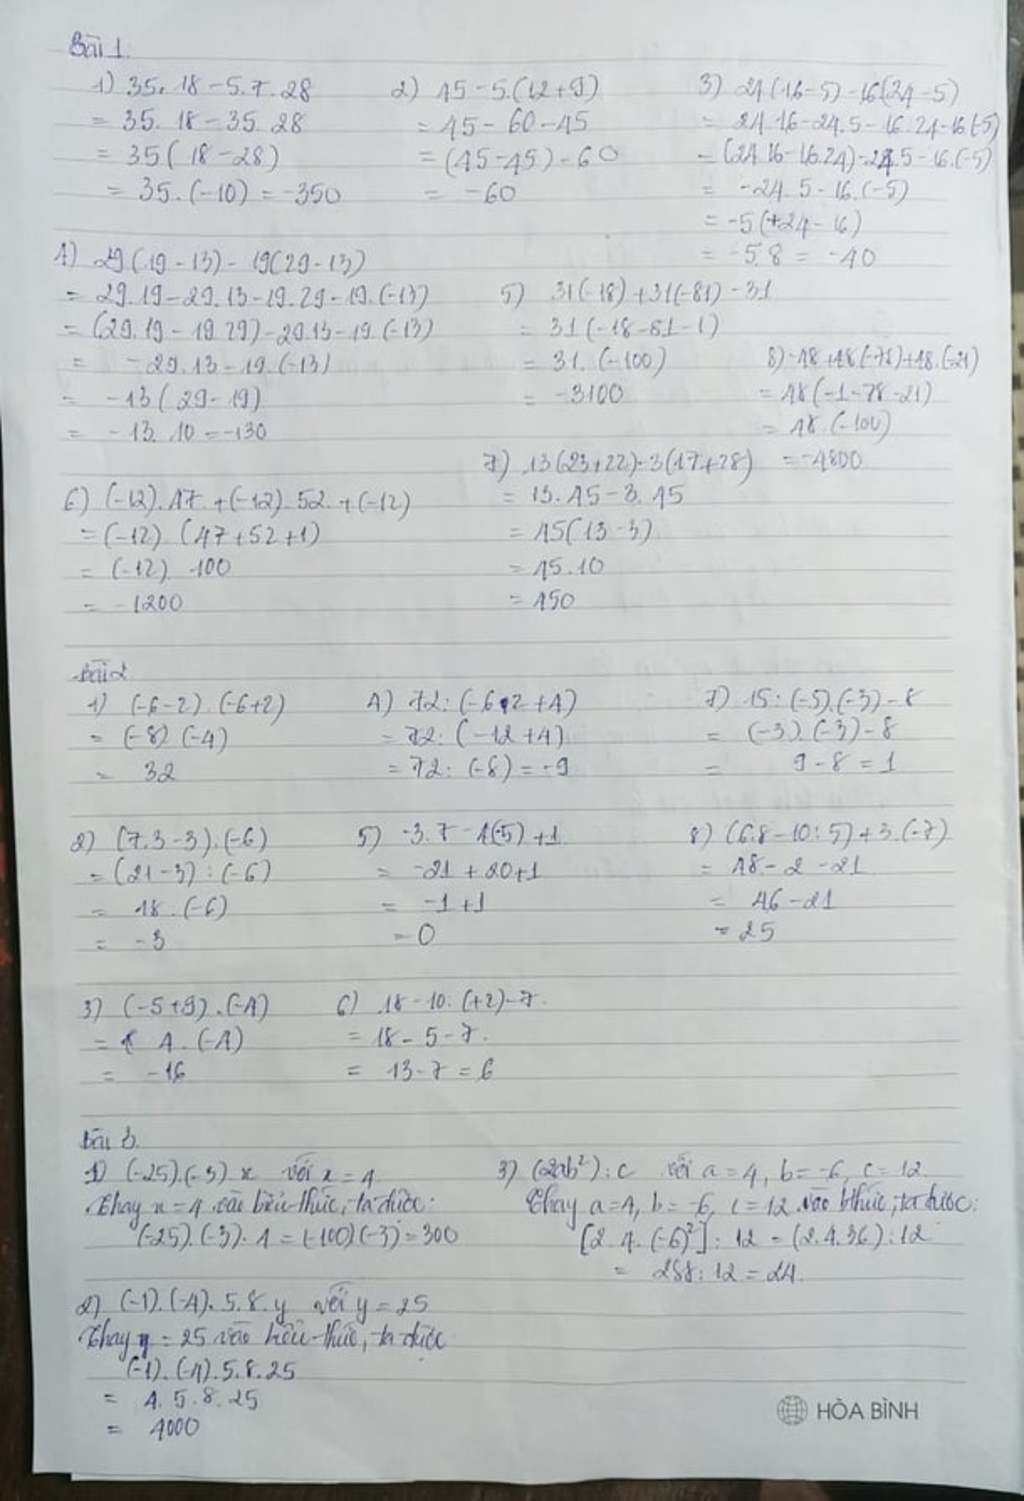 Bài 1.
1) 35. 18 - 5.7.28
= 35. 18 - 35. 28
= 35( 18 - 28)
= 35. (-10) = -350
2) 45 - 5.(12 + 9)
= 45 - 60 - 45
= (45 - 45) - 60
= -60
3) 24(16 - 5) - 16(24 - 5)
= 24.16 - 24.5 - 16.24 - 16.(-5)
= (24.16 - 16.24) - 24.5 - 16.(-5)
= -24.5 - 16.(-5)
= -5(+24 - 16)
= -5.8 = -40
4) 29(19 - 13) - 19(29 - 13)
= 29.19 - 29.13 - 19.29 - 19.(-13)
= (29.19 - 19.29) - 29.13 - 19.(-13)
= -29.13 - 19.(-13)
= -13( 29 - 19)
= -13. 10 = -130
5) 31(-18) + 31(-81) - 31
= 31(-18 - 81 - 1)
= 31. (-100)
= -3100
8) -48 + 48(-78) + 48.(-21)
= 48(-1 - 78 - 21)
= 48.(-100)
= -4800
7) 13(23 + 22) - 3(17 + 28)
= 13.45 - 3.45
= 45(13 - 3)
= 45.10
= 450
6) (-12).47 + (-12).52 + (-12)
= (-12) (47 + 52 + 1)
= (-12) 100
= -1200
Bài 2
1) (-6 - 2) (-6 + 2)
= (-8) (-4)
= 32
4) 72 : (-6.2 + 4)
= 72 : (-12 + 4)
= 72 : (-8) = -9
7) 15 : (-5).(-3) - 8
= (-3).(-3) - 8
= 9 - 8 = 1
2) (7.3 - 3).(-6)
= (21 - 3) : (-6)
= 18 .(-6)
= -3
5) -3.7 - 4(-5) + 1
= -21 + 20 + 1
= -1 + 1
= 0
8) (6.8 - 10 : 5) + 3.(-7)
= 48 - 2 - 21
= 46 - 21
= 25
3) (-5 + 9) .(-4)
= 4 .(-4)
= -16
6) 18 - 10 : (+2) - 7.
= 18 - 5 - 7.
= 13 - 7 = 6
Bài 3.
1) (-25).(-3) x với x = 4
Thay x = 4 vào biểu thức, ta được:
(-25).(-3). 4 = (-100)(-3) = 300
3) (2ab²) : c với a = 4, b = -6, c = 12
Thay a = 4, b = -6, c = 12 vào bthức, ta được:
[2. 4. (-6)²] : 12 = (2.4.36) : 12
= 288 : 12 = 24.
2) (-1).(-4). 5.8.y với y = 25
Thay y = 25 vào biểu thức, ta được
(-1).(-4).5.8.25
= 4.5.8.25
= 4000
HÒA BÌNH